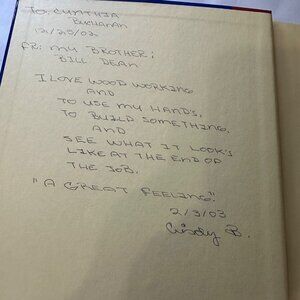 TO: CYNTHIA
BUCHANAN
12/25/02
FR: MY BROTHER:
BILL DEAN
I LOVE WOOD WORKING
AND
TO USE MY HAND'S,
TO BUILD SOMETHING.
AND
SEE WHAT IT LOOK'S
LIKE AT THE END OF
THE JOB.
"A GREAT FEELING."
2/3/03
Cindy B.